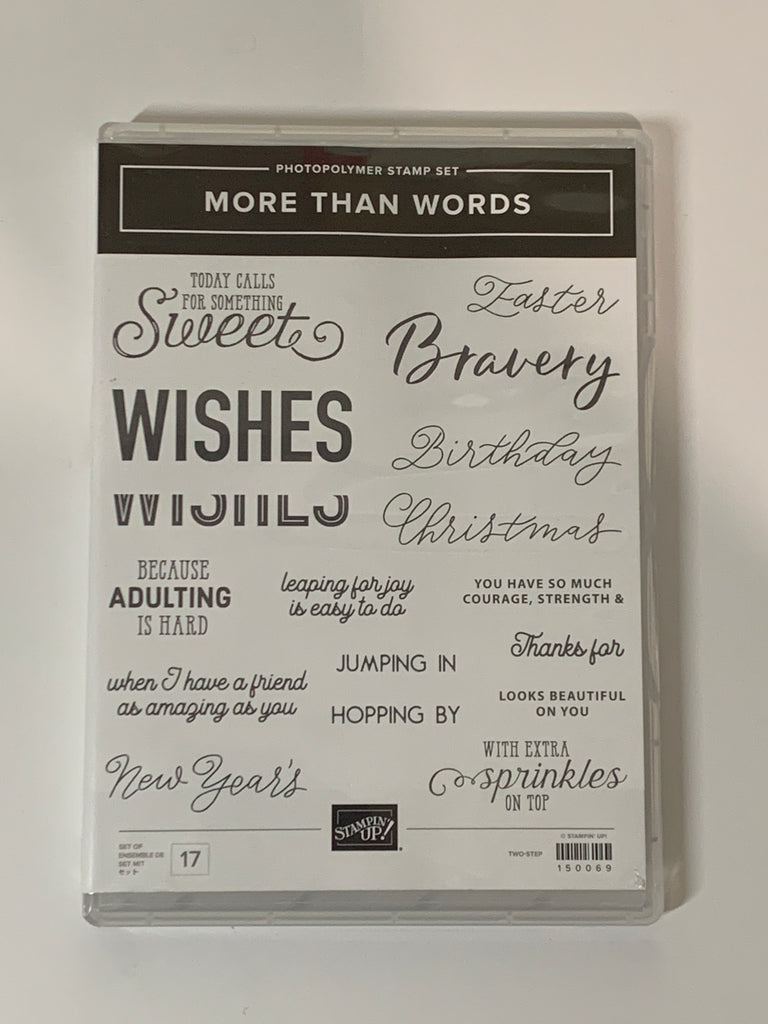 PHOTOPOLYMER STAMP SET
MORE THAN WORDS
TODAY CALLS
FOR SOMETHING
Sweet
Easter
Bravery
WISHES
Birthday
WISHES
Christmas
BECAUSE
ADULTING
IS HARD
leaping for joy
is easy to do
YOU HAVE SO MUCH
COURAGE, STRENGTH &
Thanks for
when I have a friend
as amazing as you
JUMPING IN
HOPPING BY
LOOKS BEAUTIFUL
ON YOU
New Year's
WITH EXTRA
sprinkles
ON TOP
STAMPIN'
UP!
SET OF
ENSEMBLE DE
SET MIT
セット
17
TWO-STEP
© STAMPIN' UP!
150069